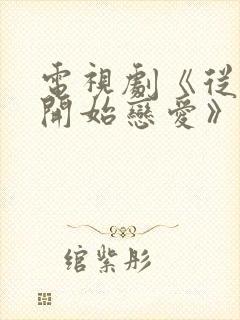 電視劇《從
開始戀愛》
綰紫彤